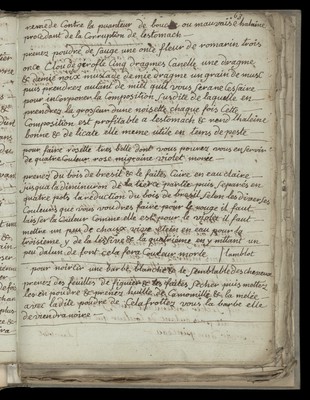 remede Contre la puanteur de bouche ou mauvaise halaine
procedant de la Corruption de lestomach
prenez poudre de sauge une once fleur de romarin trois
once Clou de gerofle cinq dragmes Canelle une dragme
& demie noix muscade demie dragme un grain de musc
puis prendrez autant de miel quil vous sera necessaire
pour incorporer la Composition susdite de laquelle en
prendrez le grosseur dune noisette chaque fois Cette
Composition est profitable a lestomach & rend lhalaine
bonne & delicate elle meme utile en tems de peste
pour faire rosette tres belle dont vous pouvez vous en servir
de quatre Couleur rose migraine violet morée
prenez du bois de bresil & le faites Cuire en eau claire
jusqua la diminution de la tierce partie puis separés en
quatre pots la reduction du bois de bresil selon les diverses
Couleurs que vous voudrez faire pour le rouge il faut
laisser la Couleur Comme elle est pour le violet il faut
mettre un peu de chaux vive en eau pour la
troisieme y de la & la quatrieme en y mélant un
peu dalun de fera Couleur morte
pour noircir une barbe blanche & le semblable des cheveux
prenez des feuilles de figuier & les faites secher puis mettez
les en poudre & prenez huille de Camomille & la melée
avec ladite poudre de Cela frottez vous la barbe elle
deviendra noire